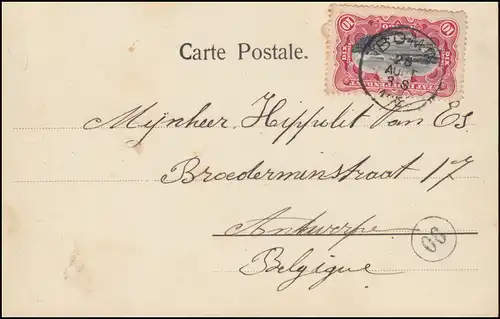 Carte Postale.
10 10
BOMA
28
AOUT
3-S
Mijnheer Hippoliet Van Es
Broederminstraat 17
Antwerpe
Belgique
90